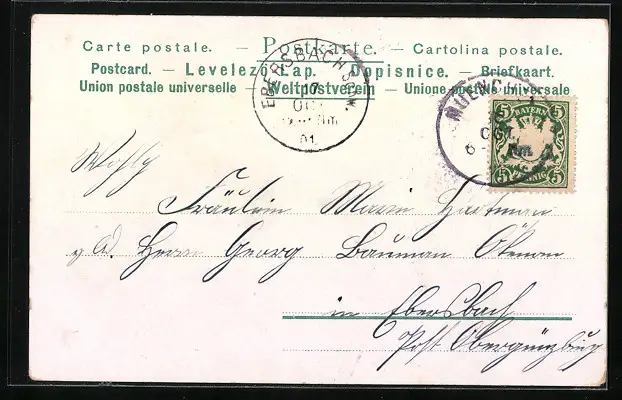 Carte postale. — Postkarte. — Cartolina postale.
Postcard. — Levelező Lap. — Dopisnice. — Briefkaart.
Union postale universelle — Weltpostverein — Unione postale universale
EBERSBACH
17
OCT
Nm.
01
MUENCHEN
OCT
6-
Nm.
5 5
BAYERN
5 5
Wohlg
Fräulein Marie Hartman
p. Ad. Herrn Georg Bauman Ökonom
in Ebersbach
Post Obergünzburg